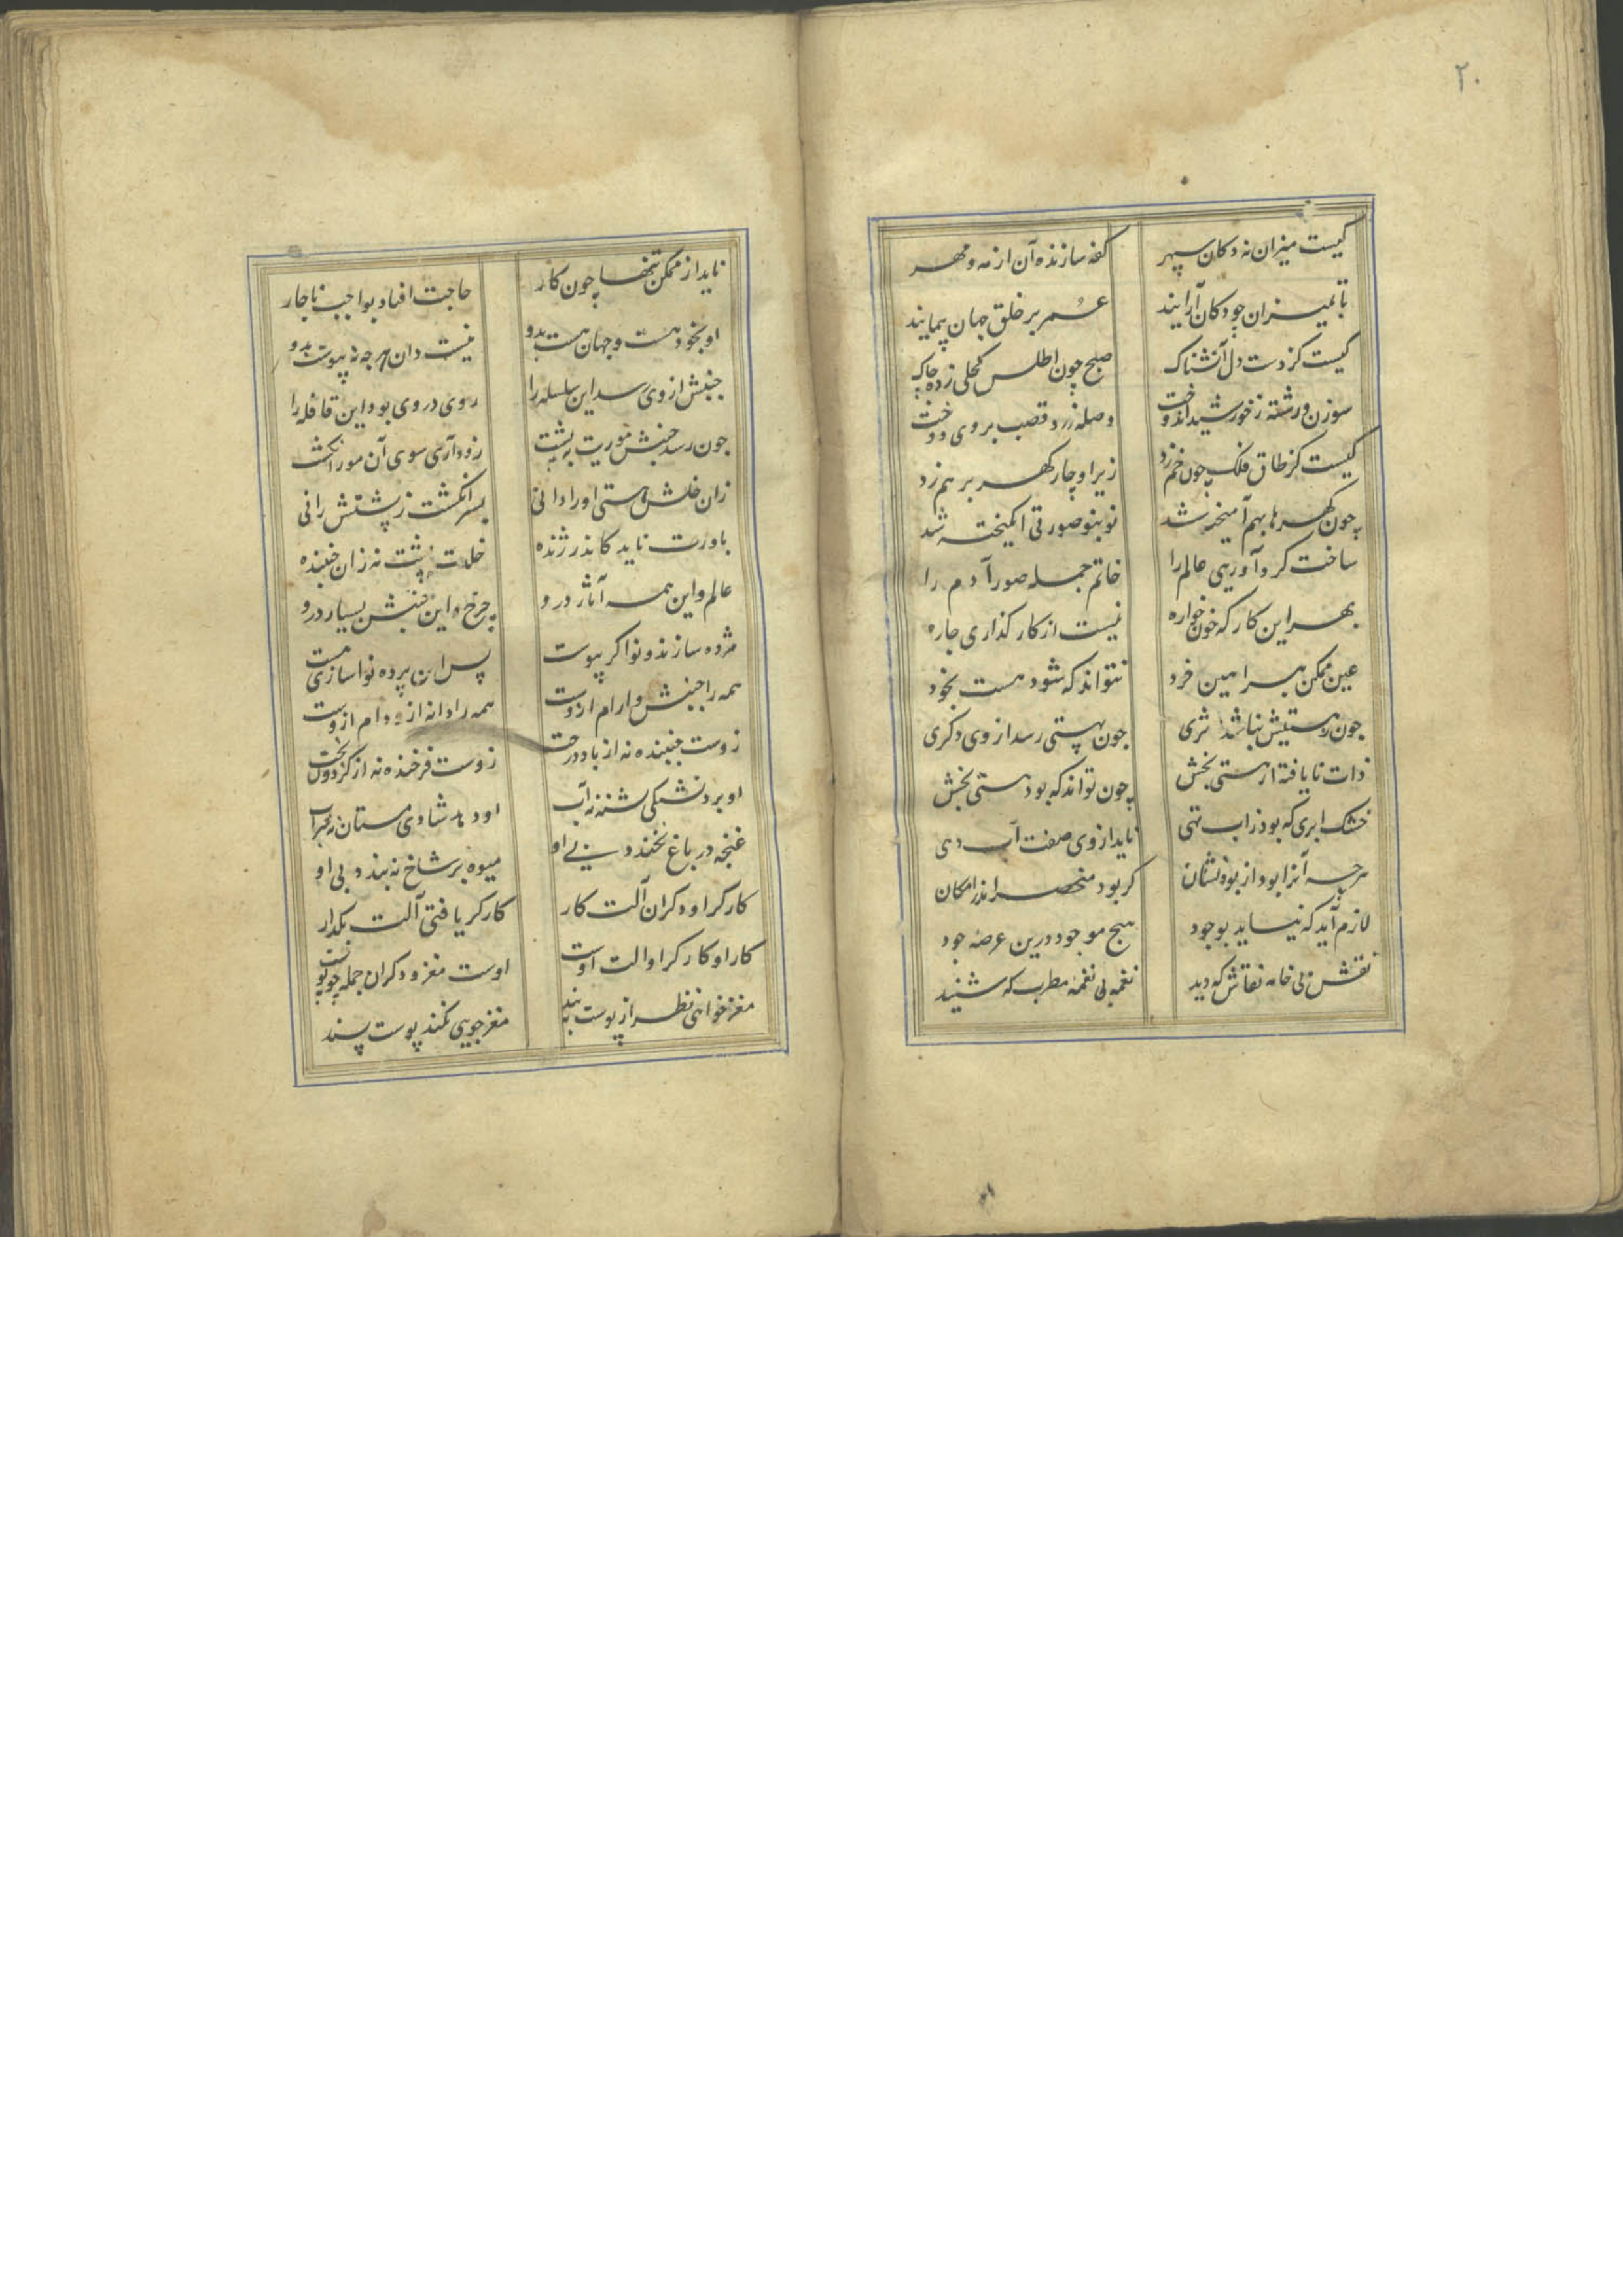 ۲۰
کیست میزان نه دکان سپهر کفه سازنده آن از مه و مهر
تا بمیزان چو دکان آرایند عمر بر خلق جهان پیمایند
کیست کز دست دل آتشناک صبح چون اطلس کحلی زده چاک
سوزن و رشته ز خورشید اندوخت وصله زرد قصب بر وی دوخت
کیست کز طاق فلک چون خم زد زیر او چار کهر بر هم زد
چون کهرها بهم آمیخته شد نو بنو صورتی انکیخته شد
ساخت کرد آوریی عالم را خاتم جمله صور آدم را
بهر این کار که خون خواره نیست از کار کذاری چاره
عین ممکن ببراهین خرد نتواند که شود هست بخود
چون ز هستیش نباشد اثری چون بهستی رسد از وی دکری
ذات نایافته از هستی بخش چون تواند که بود هستی بخش
خشک ابری که بود ز آب تهی ناید از وی صفت آب دهی
هر چه آنرا بود از بود نشان کر بود منحصر اندر امکان
لازم آید که نیاید بوجود هیچ موجود درین عرصه جود
نقش بی خامه نقاش که دید نغمه بی نغمه مطرب که شنید
ناید از ممکن تنها چون کار حاجت افتاد بواجب ناچار
او بخود هست و جهان هست بدو نیست دان هر چه نه پیوست بدو
جنبش از وی رسد این سلسله را روی در وی بود این قافله را
چون رسد جنبش موریت به پشت زود آری سوی آن مور انکشت
زان خلش هستی او را دانی بسر انکشت ز پشتش رانی
باورت ناید کاندر ژنده خلدت پشت نه زان جنبنده
عالم و این همه آثار درو چرخ و این جنبش بسیار درو
مژده سازنده نواکر پیوست پس این پرده نواسازی هست
همه را جنبش و ارام ازوست همه را دانه ازو دام ازوست
زوست جنبنده نه از باد درخت زوست فرخنده نه از کردون بخت
او برد تشنکی تشنه نه آب او دهد شادی مستان نه شراب
غنچه در باغ نخندد بی او میوه بر شاخ نه بندد بی او
کارکر او دکران آلت کار کارکر یافتی آلت بکذار
کار او کارکر او الت اوست اوست مغز و دکران جمله چو پوست
مغز خواننی نظر از پوست به بند مغز جویی نکند پوست پسند